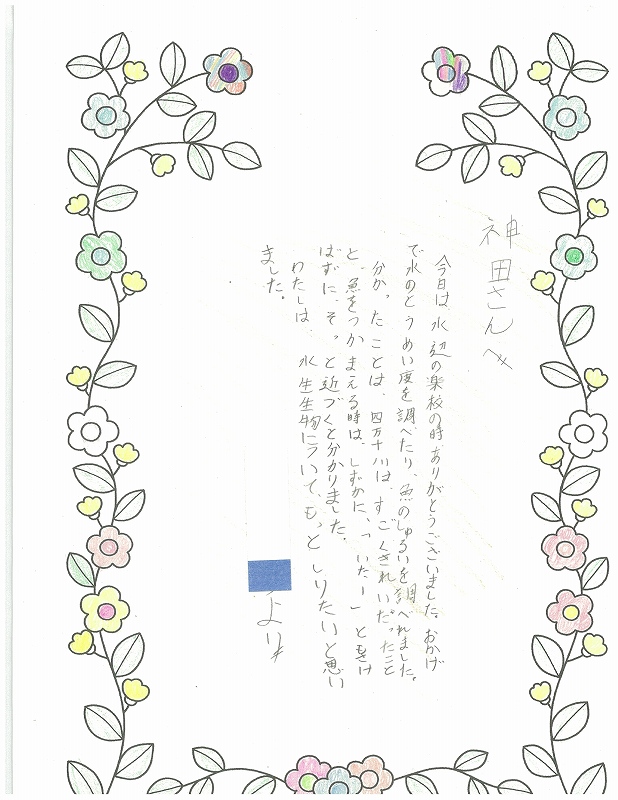 神田さんへ
今日は水辺の楽校の時ありがとうございました。おかげ
で水のとうめい度を調べたり、魚のしゅるいを調べれました。
分かったことは、四万十川は、すごくきれいだったこと
と、魚をつかまえる時は、しずかに、「いたー」ともさけ
ばずに、そっと近づくと分かりました。
わたしは、水生生物について、もっとしりたいと思い
ました。
より